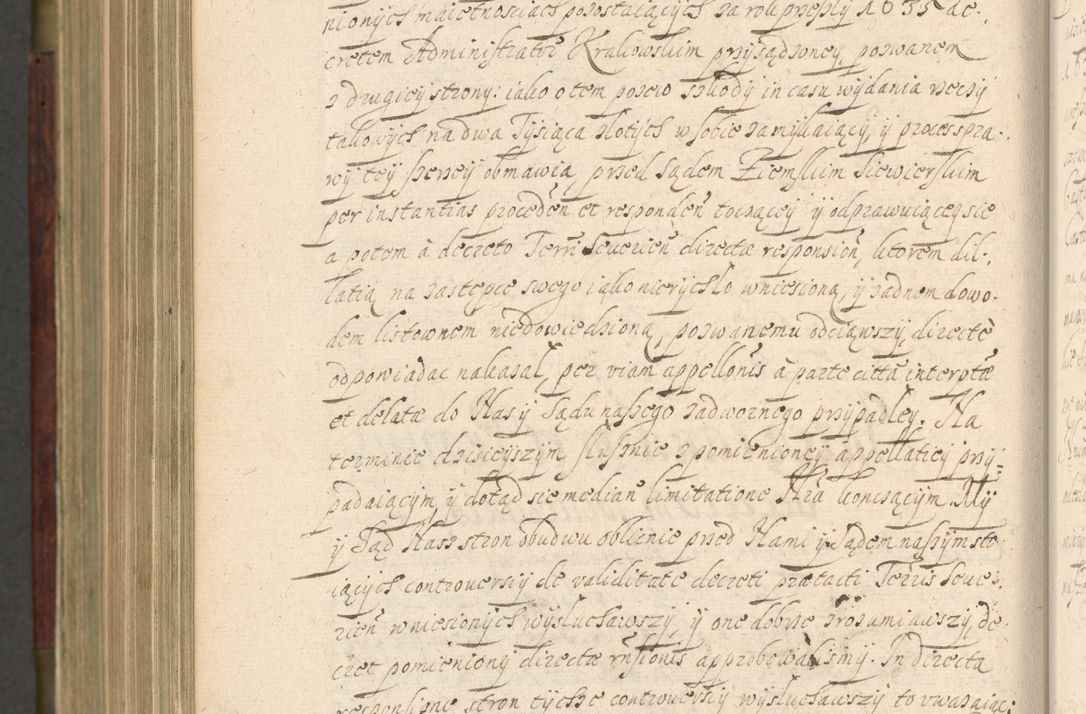 nionych maiętnosciach pozostaiących za rok przeszły 1635 de-
cretem Administrator Krakowskim przysądzoney, pozwanem
z drugiey strony: iako o tem pozew szkody in casu wydania rzeczy
takowych na dwa Tysiąca złotych w sobie zamykaiący, y process pra-
wy tey rzeczy obmawia, przed Sądem Ziemskim Siewierskim
per instantias proceden et responden toczącey y odprawuiącey sie
a potem à decreto Terri Seuerien directae responsien, ktorem dil-
latią na zastępcę swego iako nierychło wniesioną, y żadnem dowo-
dem listownem niedowiedzioną, pozwanemu odciąwszy, directè
odpowiadac nakazał, per viam appellonis à parte citta interptae
et delatae do Nas y Sądu naszego zadwornego przypadłey. Na
terminie dzisieyszym słusznie z pomienioney appellatiey przy-
padaiącym, y dotąd sie median limitatione Nra kończącym. My
y Sąd Nasz stron obudwu oblicznie przed Nami y Sądem naszym sto
iących controuersiy de validitate decreti praetacti Terris Seue-
rien wniesionych wysłuchawszy, y one dobrze zrozumiawszy, de-
cret pomieniony directae rnsionis approbowalismy. In directa
responsione stron tychże controuersiy wysłuchawszy to uważaiąc: